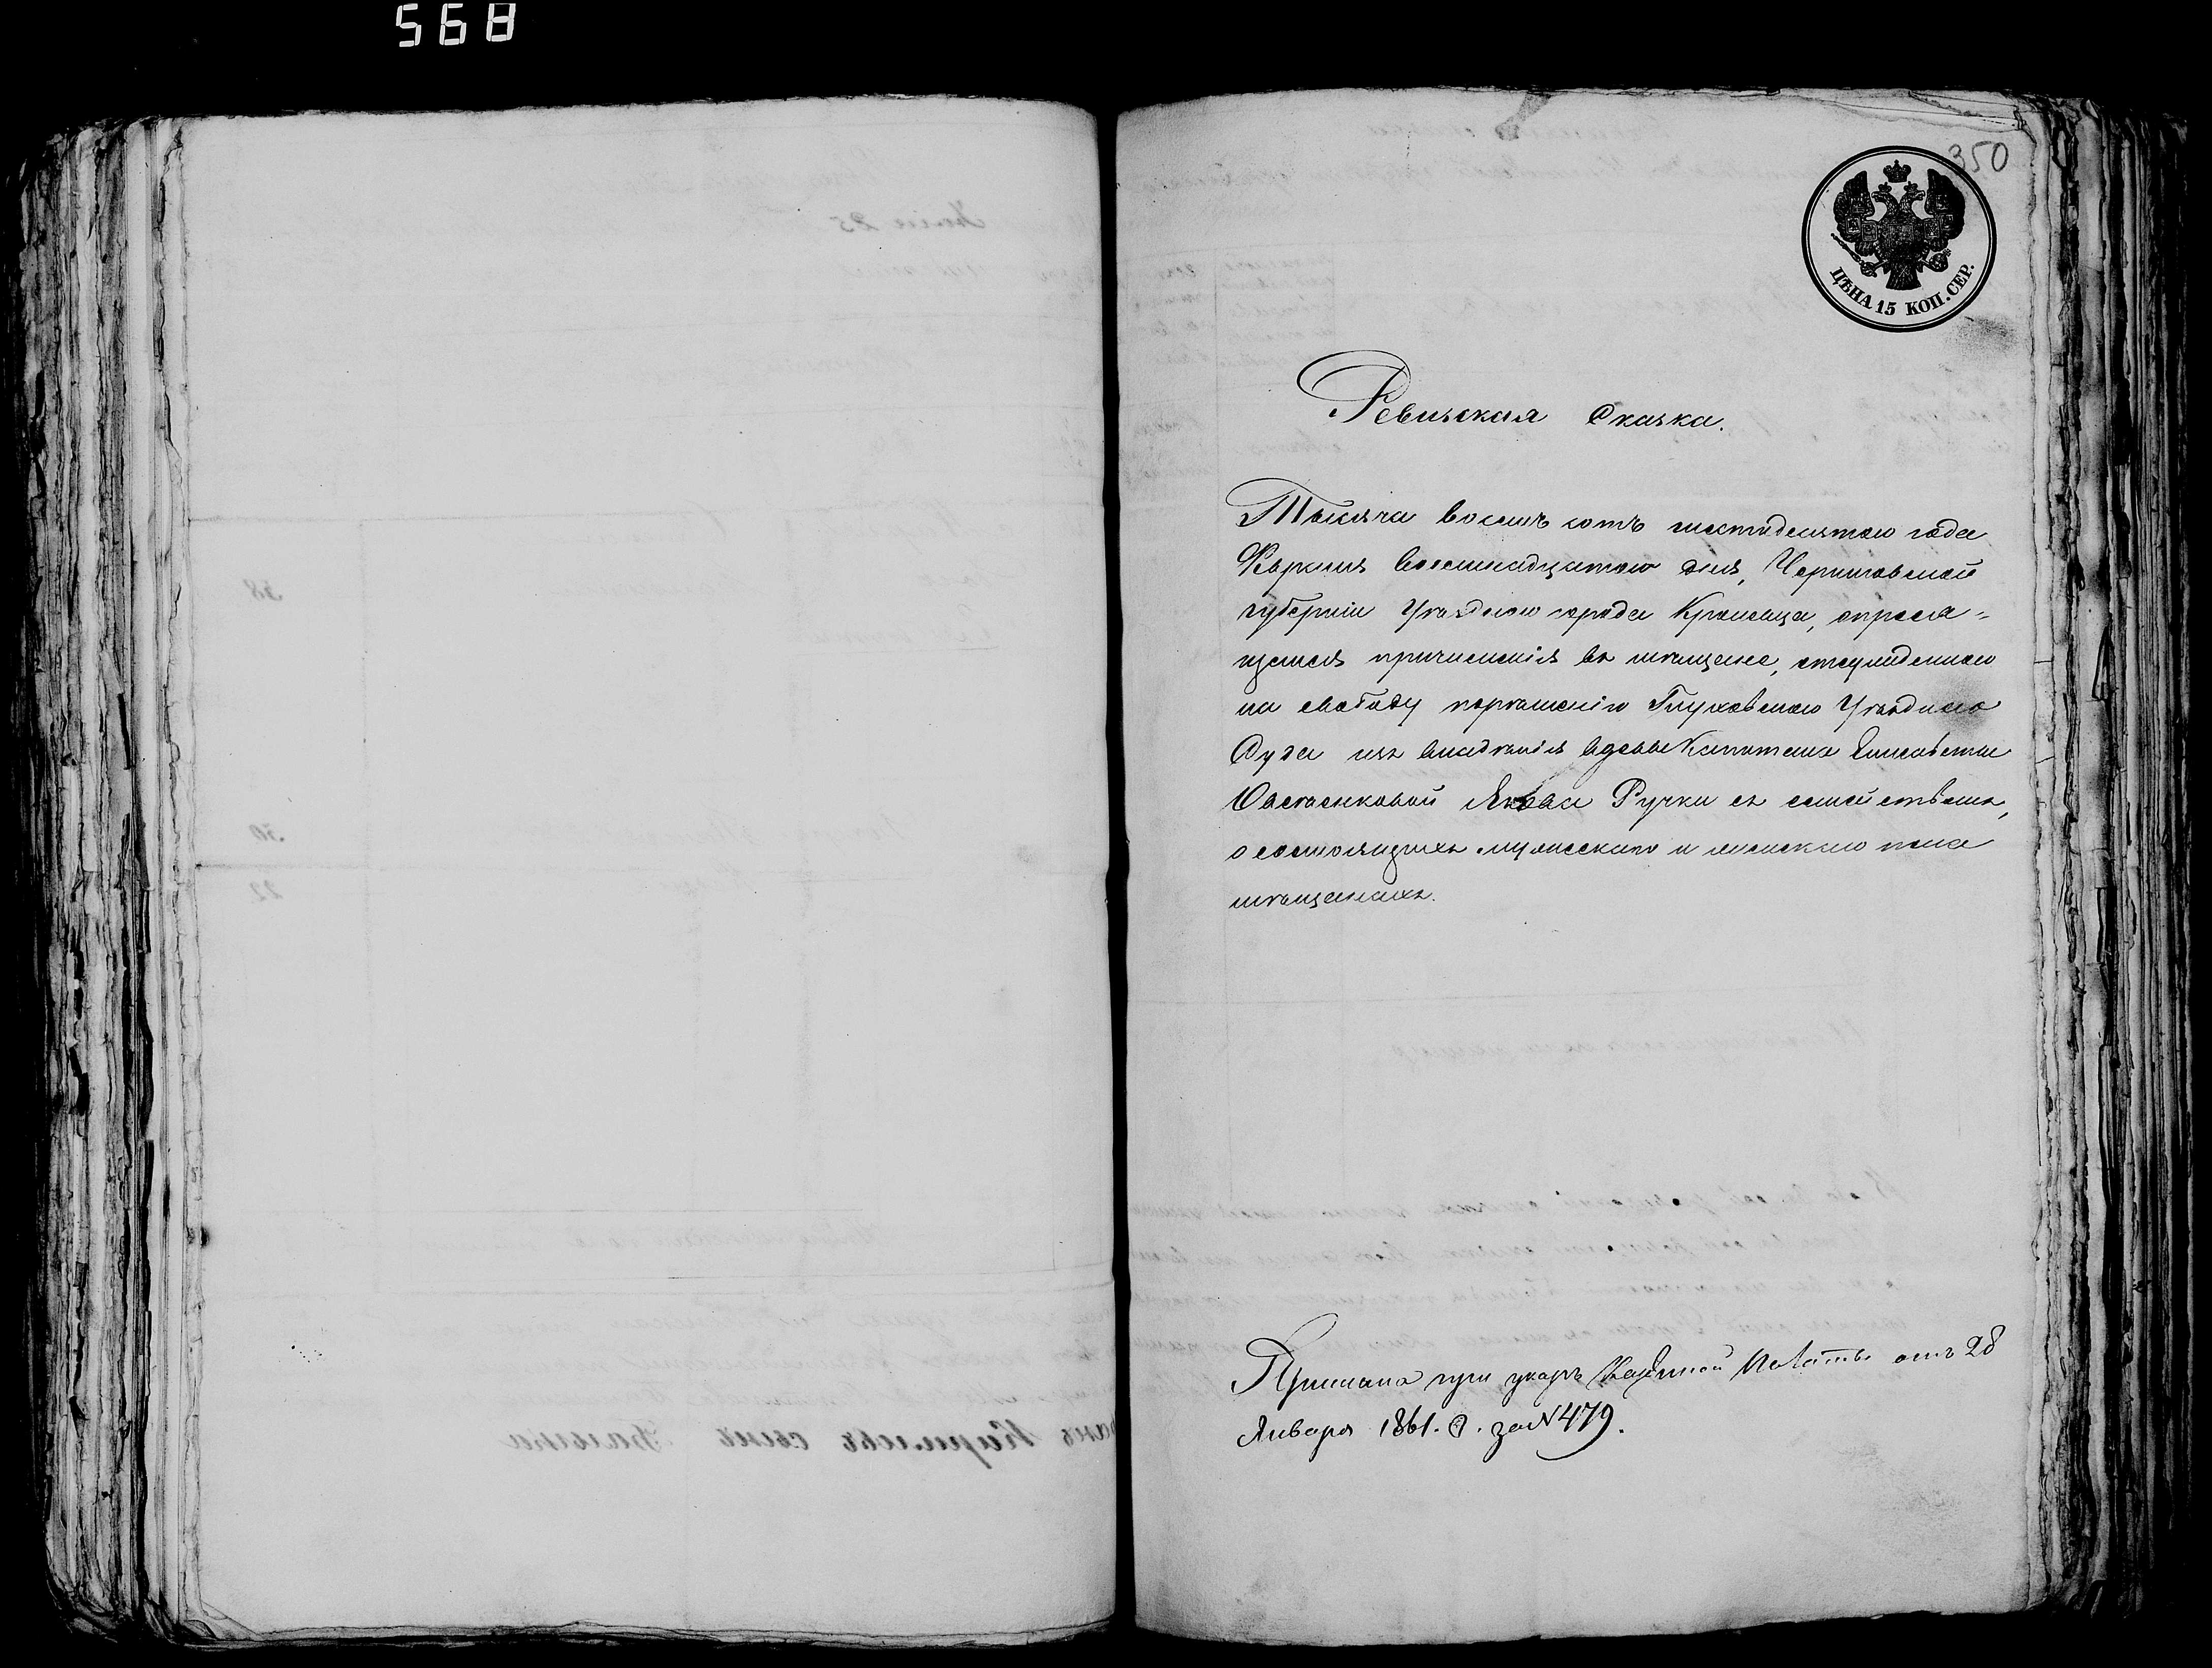 568
350
ЦѢНА 15 КОП. СЕР.
Ревизская Сказка.
Тысяча восемь сотъ шестидесятаго года
Февраля восемнадцатаго дня, Черниговской
губерніи Уѣзднаго города Кролевца, опрося-
щемся причисленія въ мѣщане, отсужденнаго
на свободу порѣшенію Глуховскаго Уѣзднаго
Суда изъ владѣнія вдовы Капитана Елисаветы
Якова Ручки съ семействомъ,
о состоящихъ мужескаго и женскаго пола
мѣщанахъ.
при указѣ Казенной Палаты отъ 28
Января 1861. г. за №479.